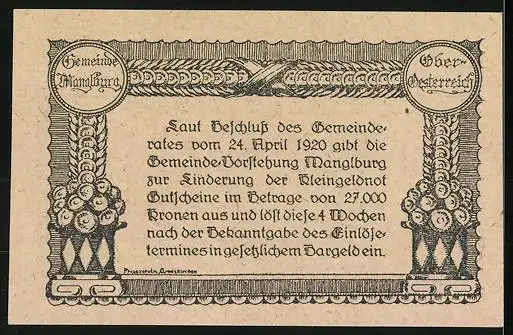 Gemeinde
Manglburg
Ober-
Oesterreich
Laut Beschluß des Gemeinde-
rates vom 24. April 1920 gibt die
Gemeinde-Vorstehung Manglburg
zur Linderung der Kleingeldnot
Gutscheine im Betrage von 27.000
Kronen aus und löst diese 4 Wochen
nach der Bekanntgabe des Einlöse-
termines in gesetzlichem Bargeld ein.
Pressverein, Grieskirchen